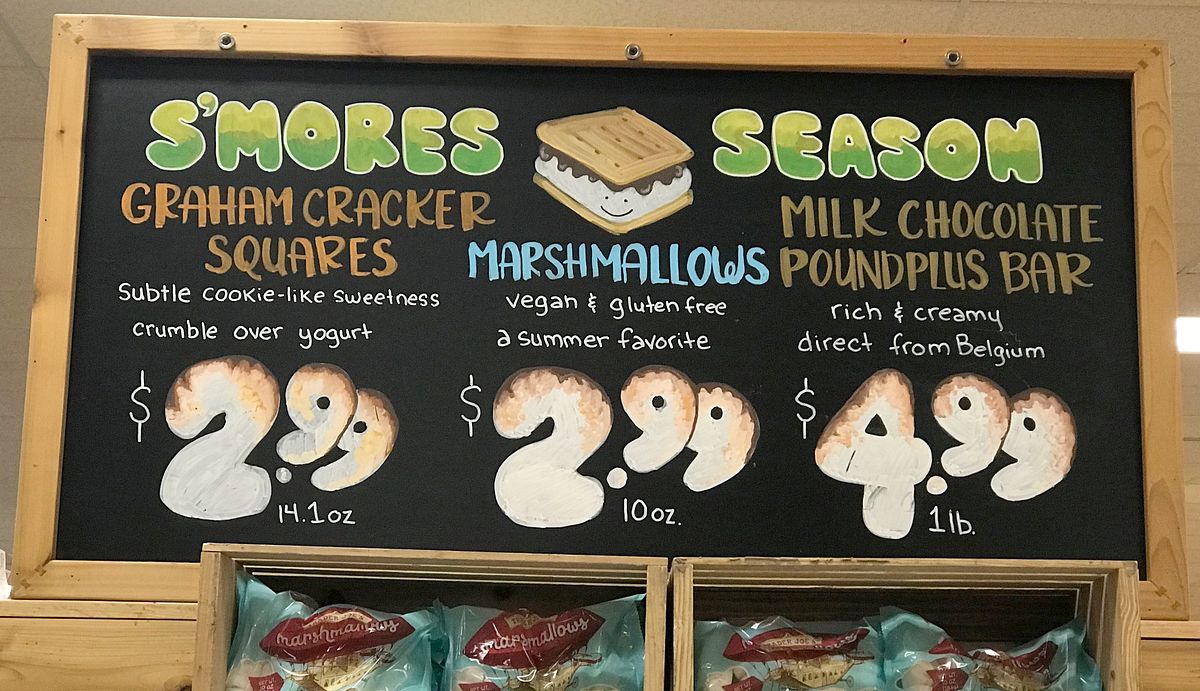 S'MORES SEASON
GRAHAM CRACKER
SQUARES
Subtle cookie-like sweetness
crumble over yogurt
$2.99
14.1oz
MARSHMALLOWS
vegan & gluten free
a summer favorite
$2.99
10oz.
MILK CHOCOLATE
POUNDPLUS BAR
rich & creamy
direct from Belgium
$4.99
1lb.
marshmallows
marshmallows